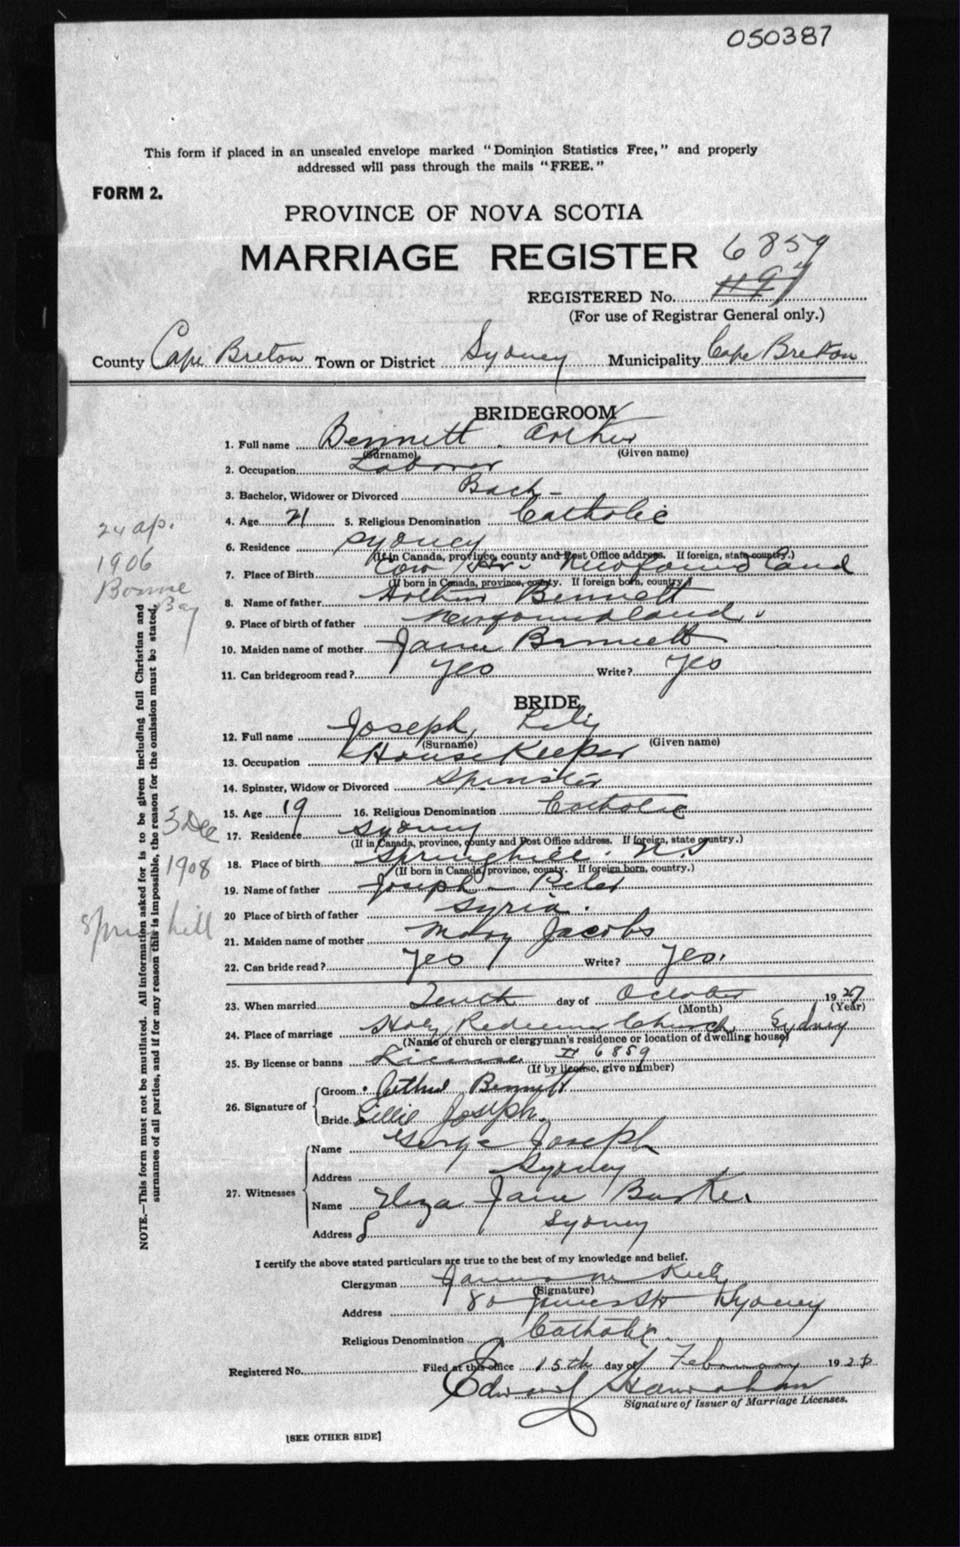 050387
This form if placed in an unsealed envelope marked "Dominion Statistics Free," and properly
addressed will pass through the mails "FREE."
FORM 2.
PROVINCE OF NOVA SCOTIA
MARRIAGE REGISTER 6859
REGISTERED No.
(For use of Registrar General only.)
County Cape Breton Town or District Sydney Municipality Cape Breton
BRIDEGROOM
1. Full name Bennett Arthur
(Surname) (Given name)
2. Occupation Laborer
3. Bachelor, Widower or Divorced Bach-
4. Age 21 5. Religious Denomination Catholic
6. Residence Sydney
(If in Canada, province, county and Post Office address. If foreign, state country.)
7. Place of Birth Cow Hr. Newfoundland
(If born in Canada, province, county. If foreign born, country)
8. Name of father Arthur Bennett
9. Place of birth of father Newfoundland
10. Maiden name of mother Jane Bennett
11. Can bridegroom read? Yes Write? Yes
24 ap.
1906
Bonne
Bay
BRIDE
12. Full name Joseph, Lily
(Surname) (Given name)
13. Occupation House Keeper
14. Spinster, Widow or Divorced Spinster
15. Age 19 16. Religious Denomination Catholic
17. Residence Sydney
(If in Canada, province, county and Post Office address. If foreign, state country.)
18. Place of birth Springhill N.S
(If born in Canada, province, county. If foreign born, country.)
19. Name of father Joseph Peter
20 Place of birth of father Syria.
21. Maiden name of mother Mary Jacobs
22. Can bride read? Yes Write? Yes.
3 Dec
1908
Springhill
23. When married Tenth day of October 1927
(Month) (Year)
24. Place of marriage Holy Redeemer Church Sydney
(Name of church or clergyman's residence or location of dwelling house)
25. By license or banns License # 6859
(If by license, give number)
26. Signature of Groom Arthur Bennett
Bride Lillie Joseph.
27. Witnesses Name George Joseph
Address Sydney
Name Eliza Jane Burke.
Address Sydney
I certify the above stated particulars are true to the best of my knowledge and belief.
Clergyman James
(Signature)
Address 80 James St Sydney
Religious Denomination Catholic
Registered No. Filed at this office 15th day of February 1928
Edward Hanrahan
Signature of Issuer of Marriage Licenses.
[SEE OTHER SIDE]
NOTE.—This form must not be mutilated. All information asked for is to be given including full Christian and
surnames of all parties, and if for any reason this is impossible, the reason for the omission must be stated.